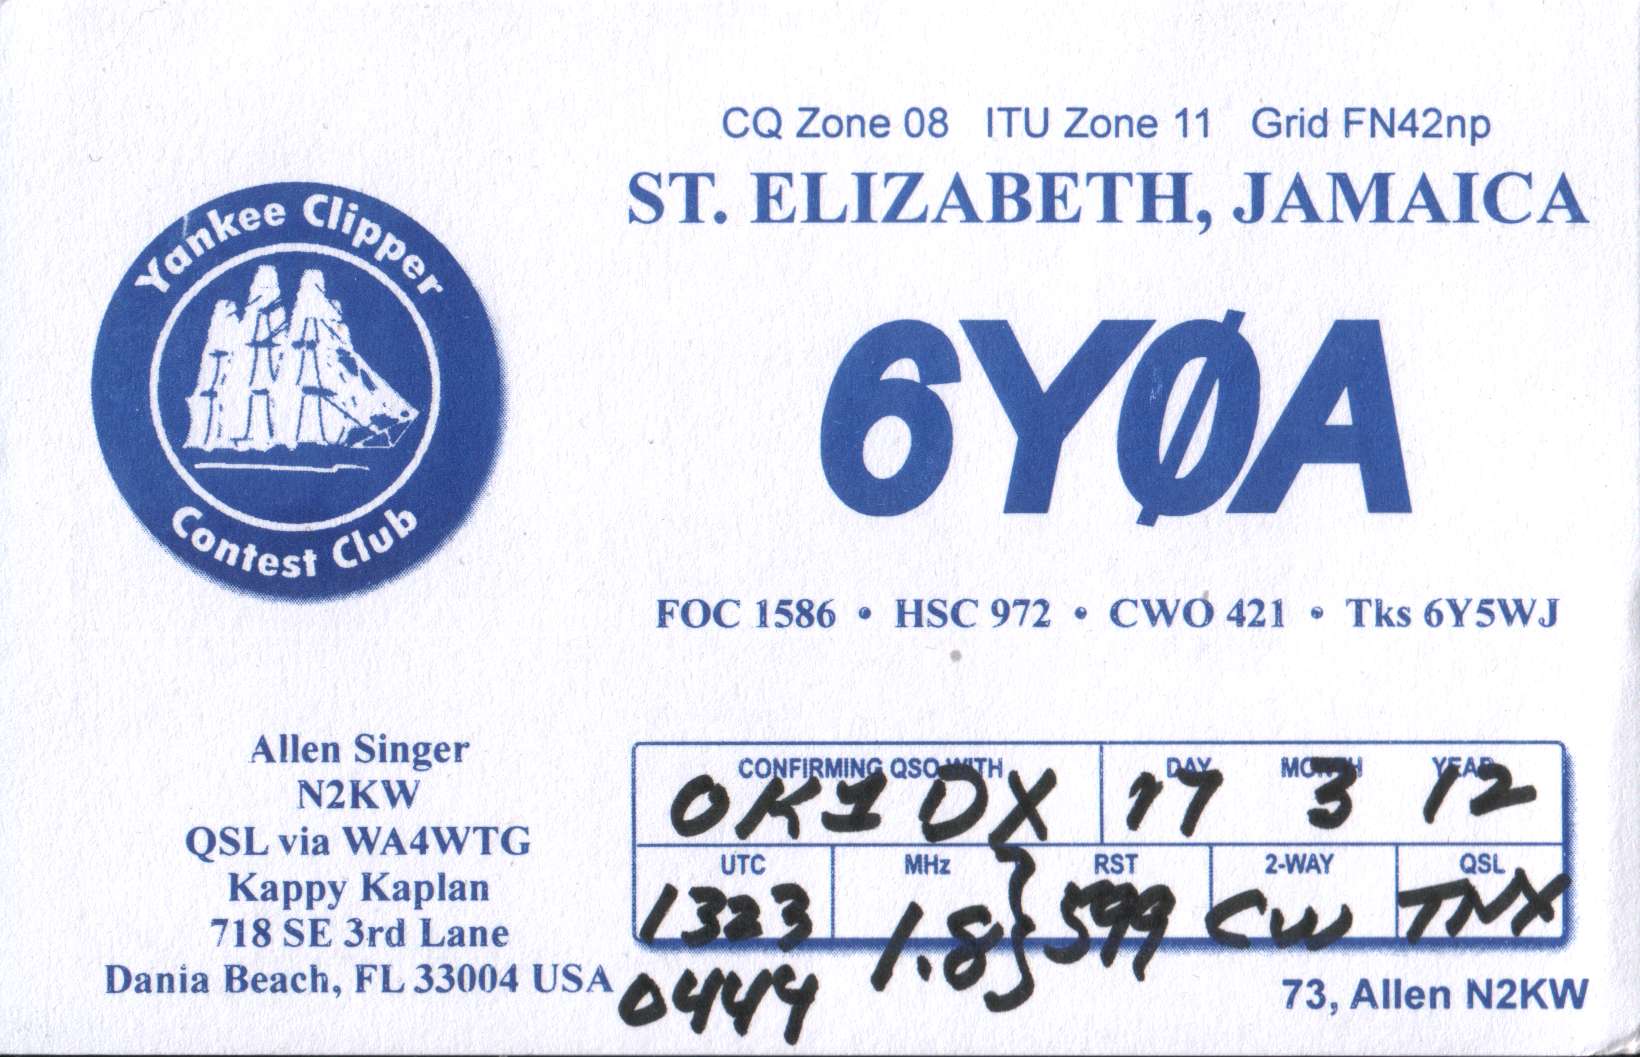 CQ Zone 08 ITU Zone 11 Grid FN42np
ST. ELIZABETH, JAMAICA
Yankee Clipper
Contest Club
6YØA
FOC 1586 • HSC 972 • CWO 421 • Tks 6Y5WJ
Allen Singer
N2KW
QSL via WA4WTG
Kappy Kaplan
718 SE 3rd Lane
Dania Beach, FL 33004 USA
CONFIRMING QSO WITH DAY MONTH YEAR
OK1DX 17 3 12
UTC MHz RST 2-WAY QSL
1323 1.8 } 599 CW TNX
0444
73, Allen N2KW